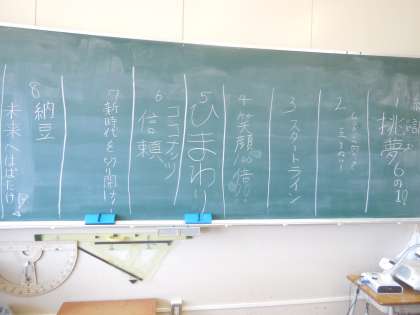 1
桃夢6の1!!
2
3 スタートライン
4 笑顔の倍!!
5 ひまわり
ココナッツ
6 信頼
7 新時代を切り開け!
8 納豆
未来へはばたけ